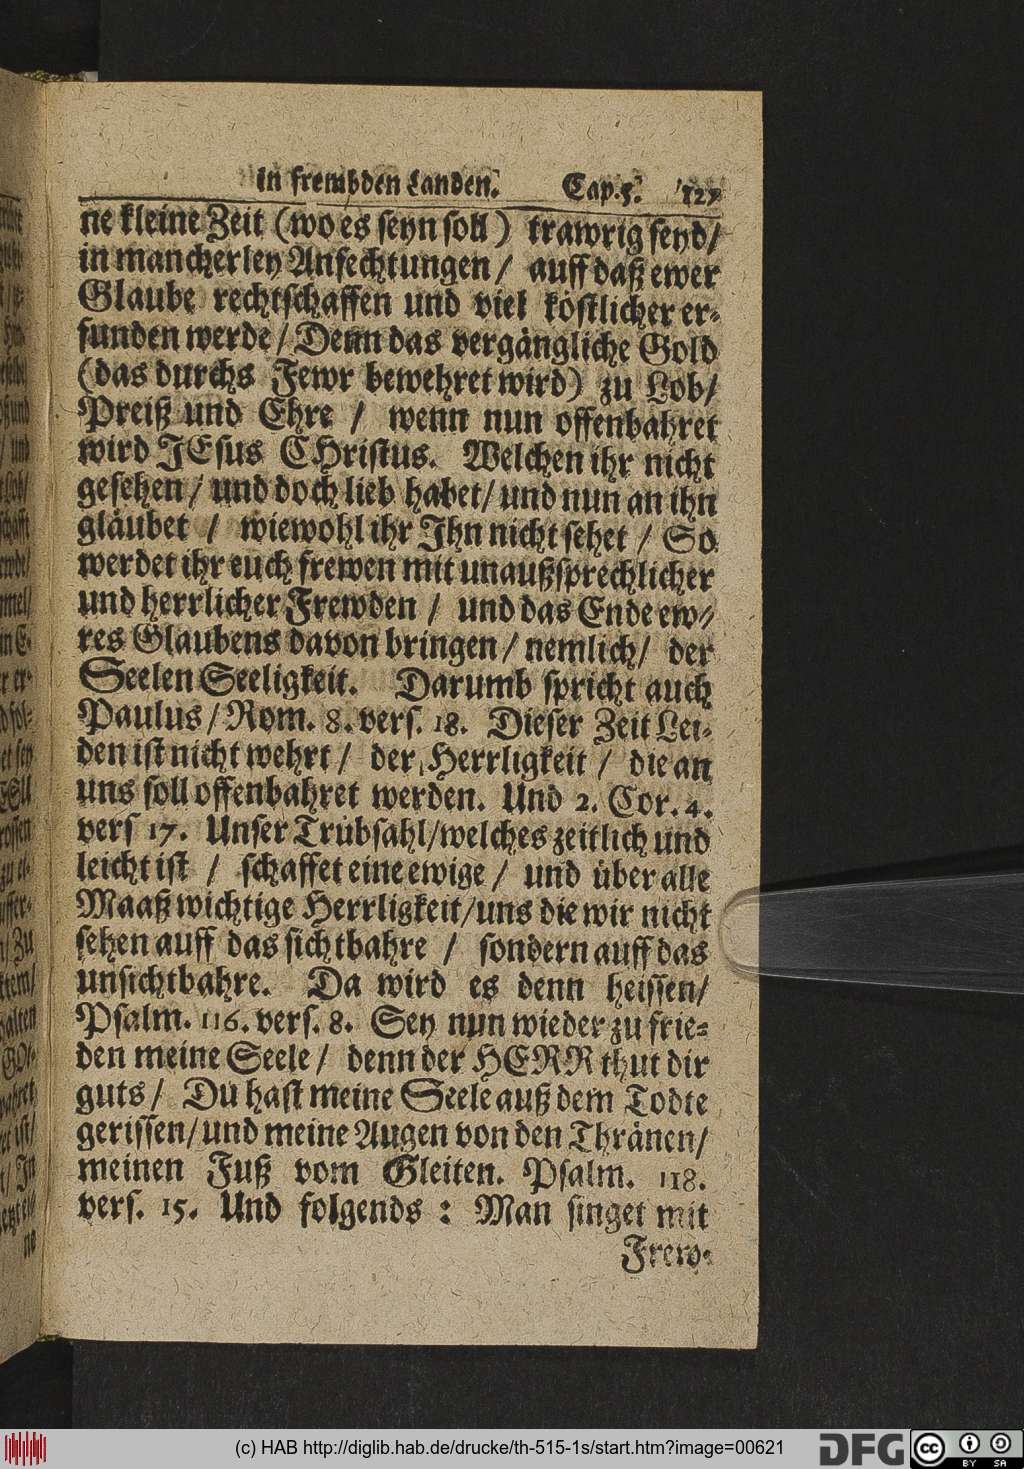 in frembden Landen. Cap. 5. 127
ne kleine Zeit (wo es seyn soll) trawrig seyd/
in mancherley Anfechtungen/ auff daß ewer
Glaube rechtschaffen und viel köstlicher er-
funden werde/ Denn das vergängliche Gold
(das durchs Fewr bewehret wird) zu Lob/
Preiß und Ehre / wenn nun offenbahret
wird JEsus CHristus. Welchen ihr nicht
gesehen/ und doch lieb habet/ und nun an ihn
gläubet / wiewohl ihr Ihn nicht sehet / So
werdet ihr euch frewen mit unaußsprechlicher
und herrlicher Frewden / und das Ende ew-
res Glaubens davon bringen/ nemlich/ der
Seelen Seeligkeit. Darumb spricht auch
Paulus/ Rom. 8. vers. 18. Dieser Zeit Lei-
den ist nicht wehrt/ der Herrligkeit / die an
uns soll offenbahret werden. Und 2. Cor. 4.
vers 17. Unser Trübsahl/welches zeitlich und
leicht ist / schaffet eine ewige / und über alle
Maaß wichtige Herrligkeit/uns die wir nicht
sehen auff das sichtbahre / sondern auff das
unsichtbahre. Da wird es denn heissen/
Psalm. 116. vers. 8. Sey nun wieder zu frie-
den meine Seele/ denn der HERR thut dir
guts/ Du hast meine Seele auß dem Todte
gerissen/ und meine Augen von den Thränen/
meinen Fuß vom Gleiten. Psalm. 118.
vers. 15. Und folgends : Man singet mit
Frew-
(c) HAB http://diglib.hab.de/drucke/th-515-1s/start.htm?image=00621
DFG
cc BY SA